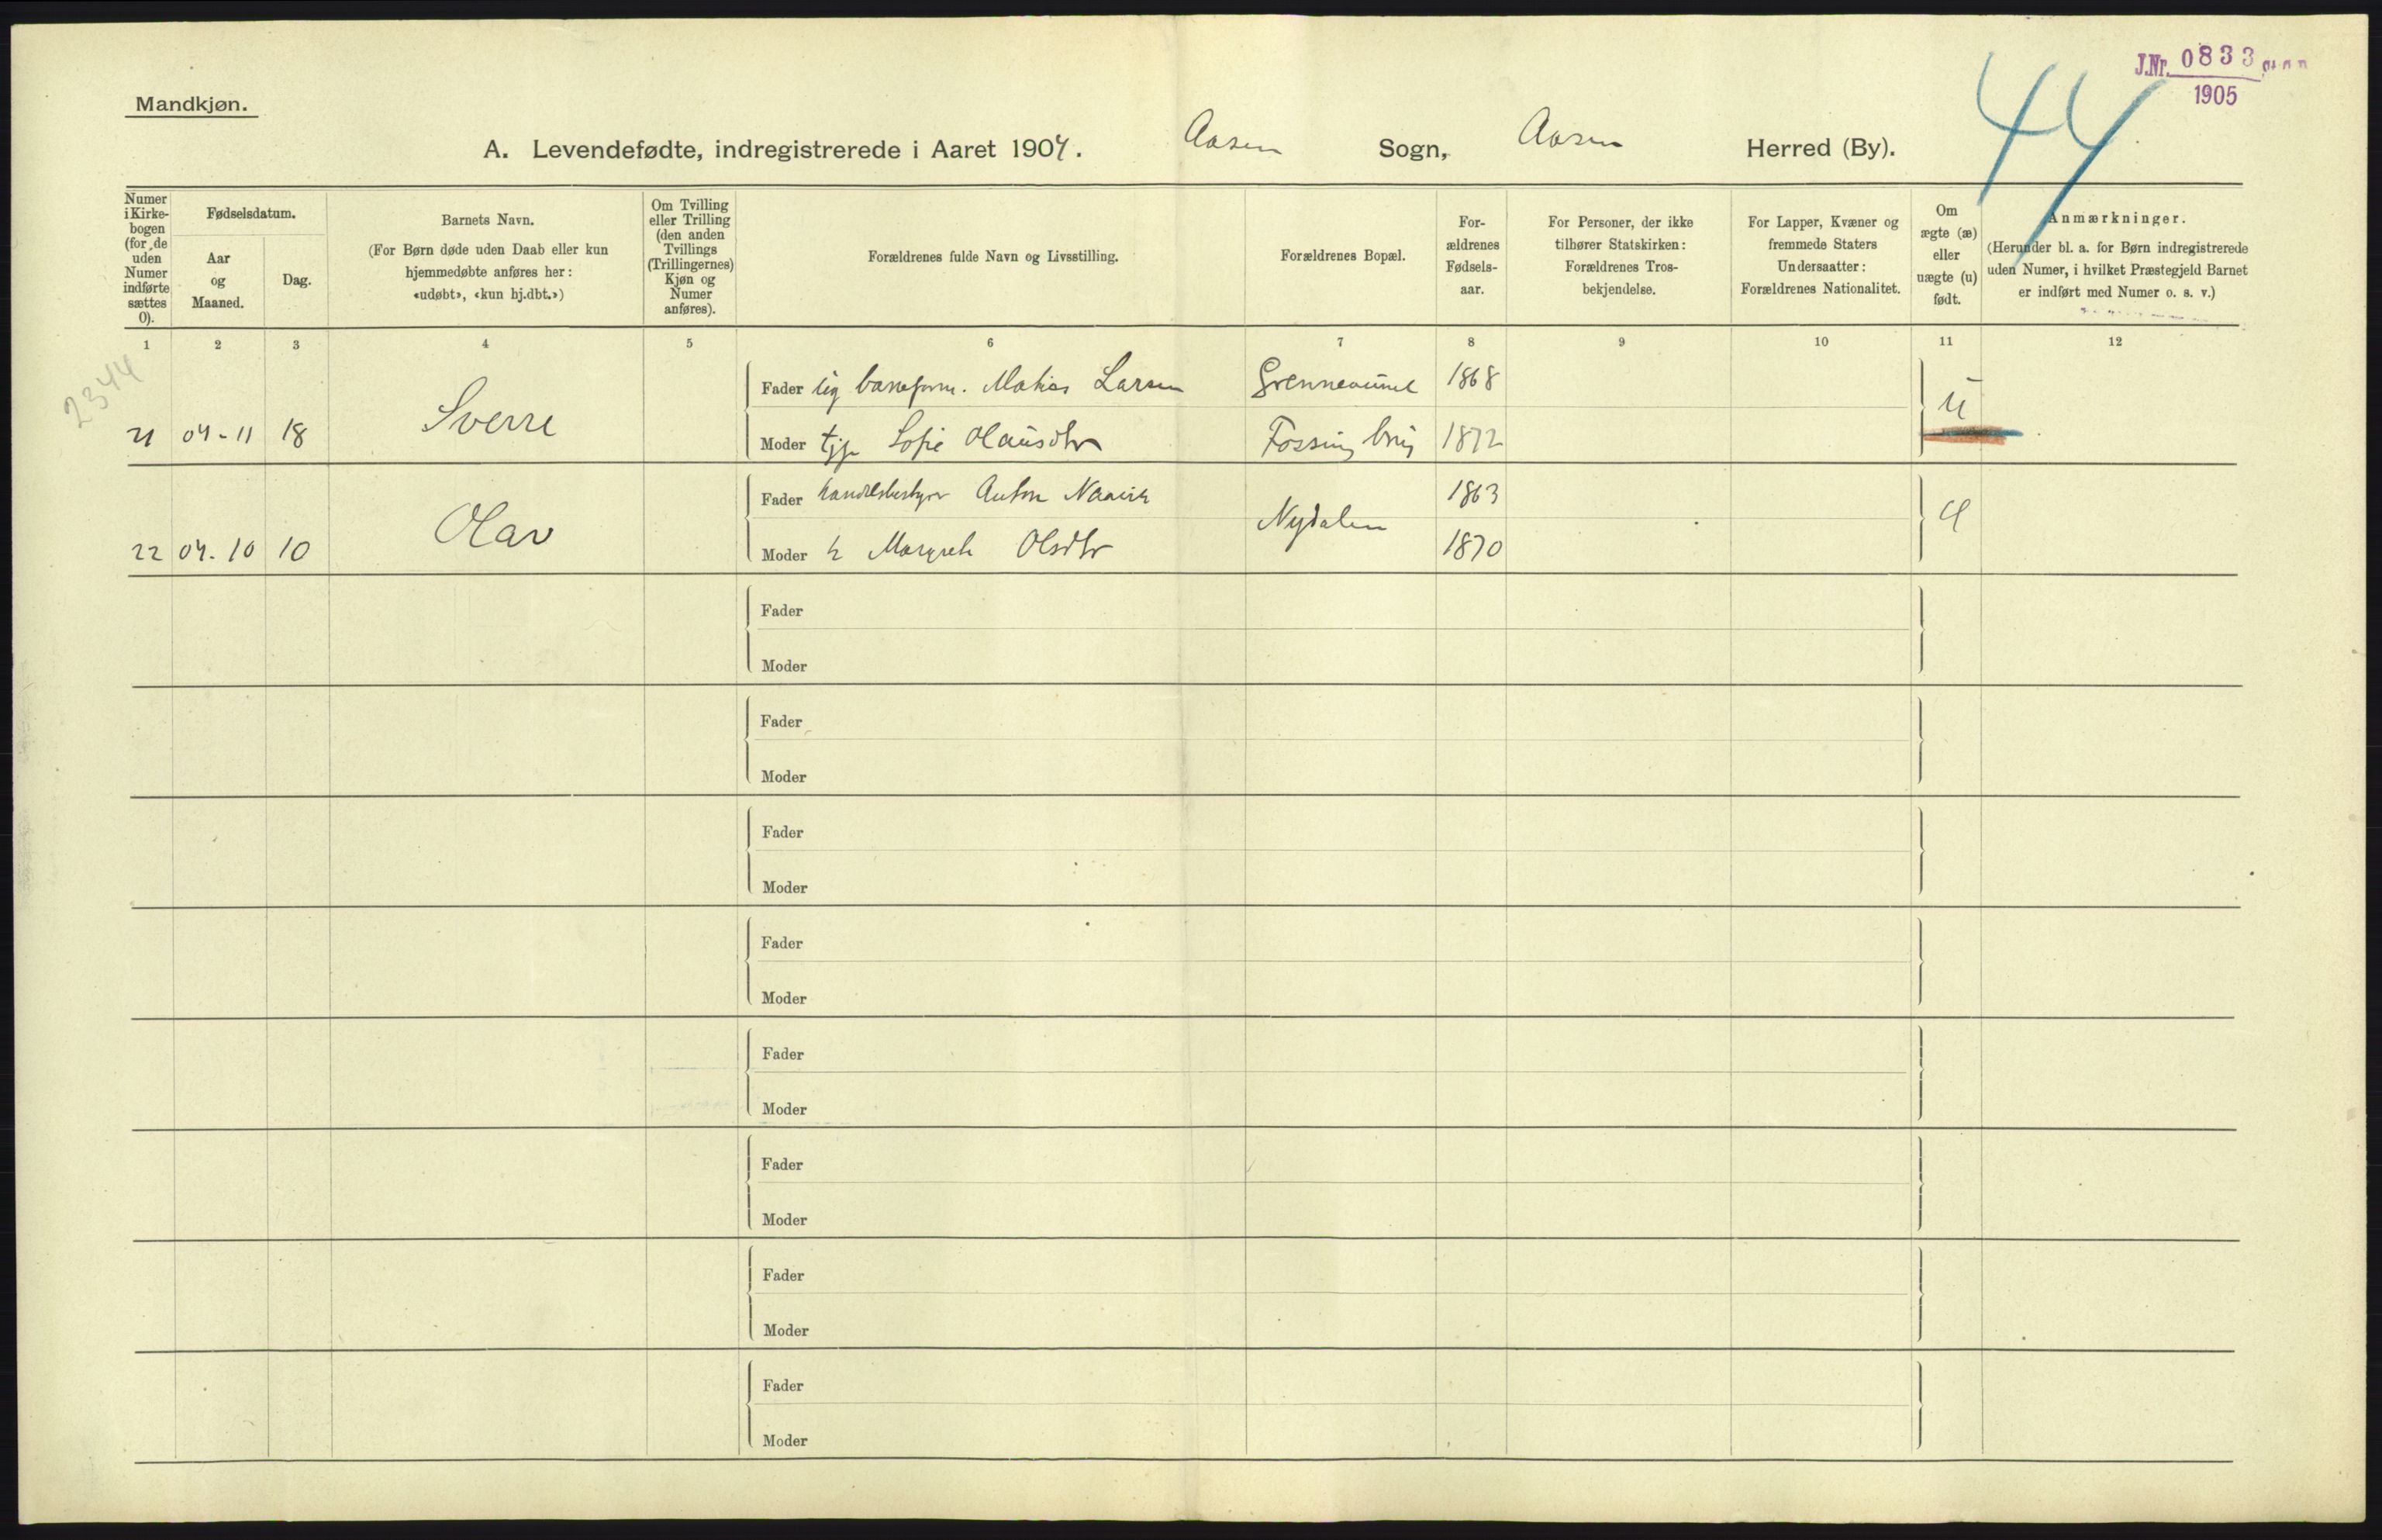 J.Nr. 0833
1905
44
Mandkjøn.
A. Levendefødte, indregistrerede i Aaret 1904. Aasen Sogn, Aasen Herred (By).
Numer i Kirkebogen (for de uden Numer indførte sættes 0).
Fødselsdatum.
Aar og Maaned.
Dag.
Barnets Navn.
(For Børn døde uden Daab eller kun hjemmedøbte anføres her: «udøbt», «kun hj.dbt.»)
Om Tvilling eller Trilling (den anden Tvillings (Trillingernes) Kjøn og Numer anføres).
Forældrenes fulde Navn og Livsstilling.
Forældrenes Bopæl.
Forældrenes Fødselsaar.
For Personer, der ikke tilhører Statskirken: Forældrenes Trosbekjendelse.
For Lapper, Kvæner og fremmede Staters Undersaatter: Forældrenes Nationalitet.
Om ægte (æ) eller uægte (u) født.
Anmærkninger.
(Herunder bl. a. for Børn indregistrerede uden Numer, i hvilket Præstegjeld Barnet er indført med Numer o. s. v.)
1 2 3 4 5 6 7 8 9 10 11 12
2344
Fader Larsen 1868 u
21 04-11 18 Sverre Moder Sofie Olausdtr 1872
Fader Anton 1863
22 04-10 10 Olav Nydalen
Moder Olsdtr 1870
Fader
Moder
Fader
Moder
Fader
Moder
Fader
Moder
Fader
Moder
Fader
Moder
Fader
Moder
Fader
Moder